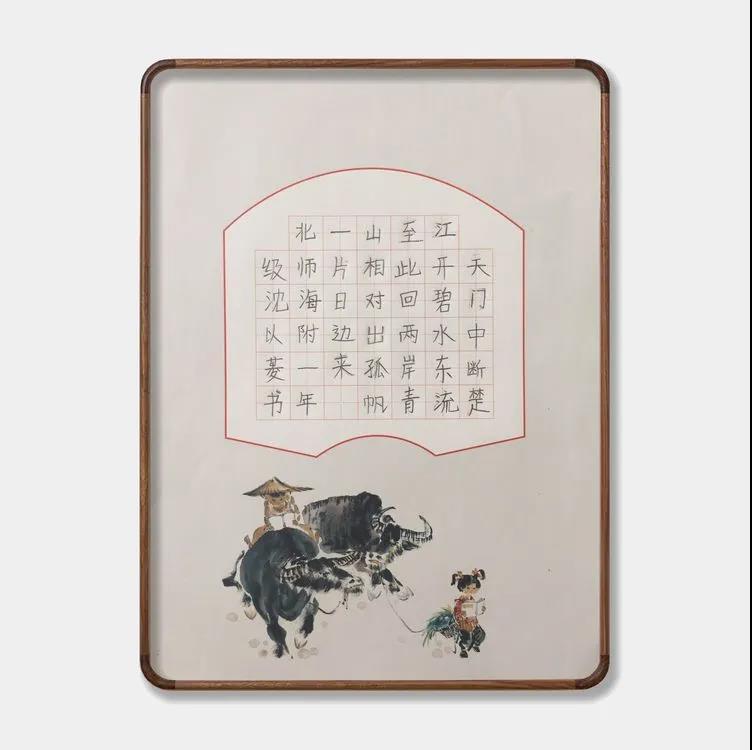 天门中断楚
江开碧水东流
至此回两岸青
山相对出孤帆
一片日边来
北师海附一年
级沈以菱书